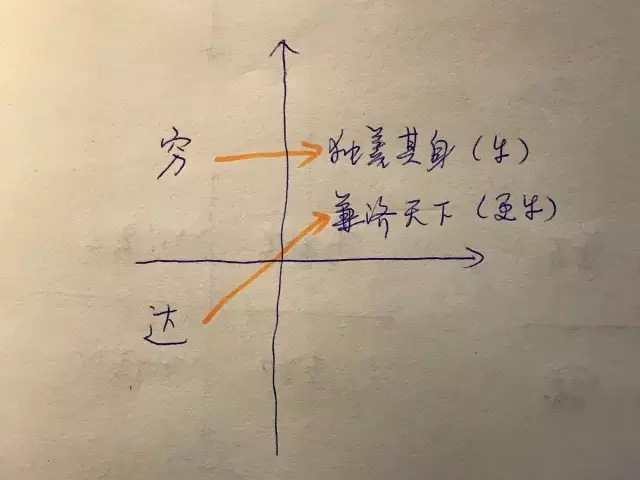 穷
独善其身（牛）
兼济天下（更牛）
达